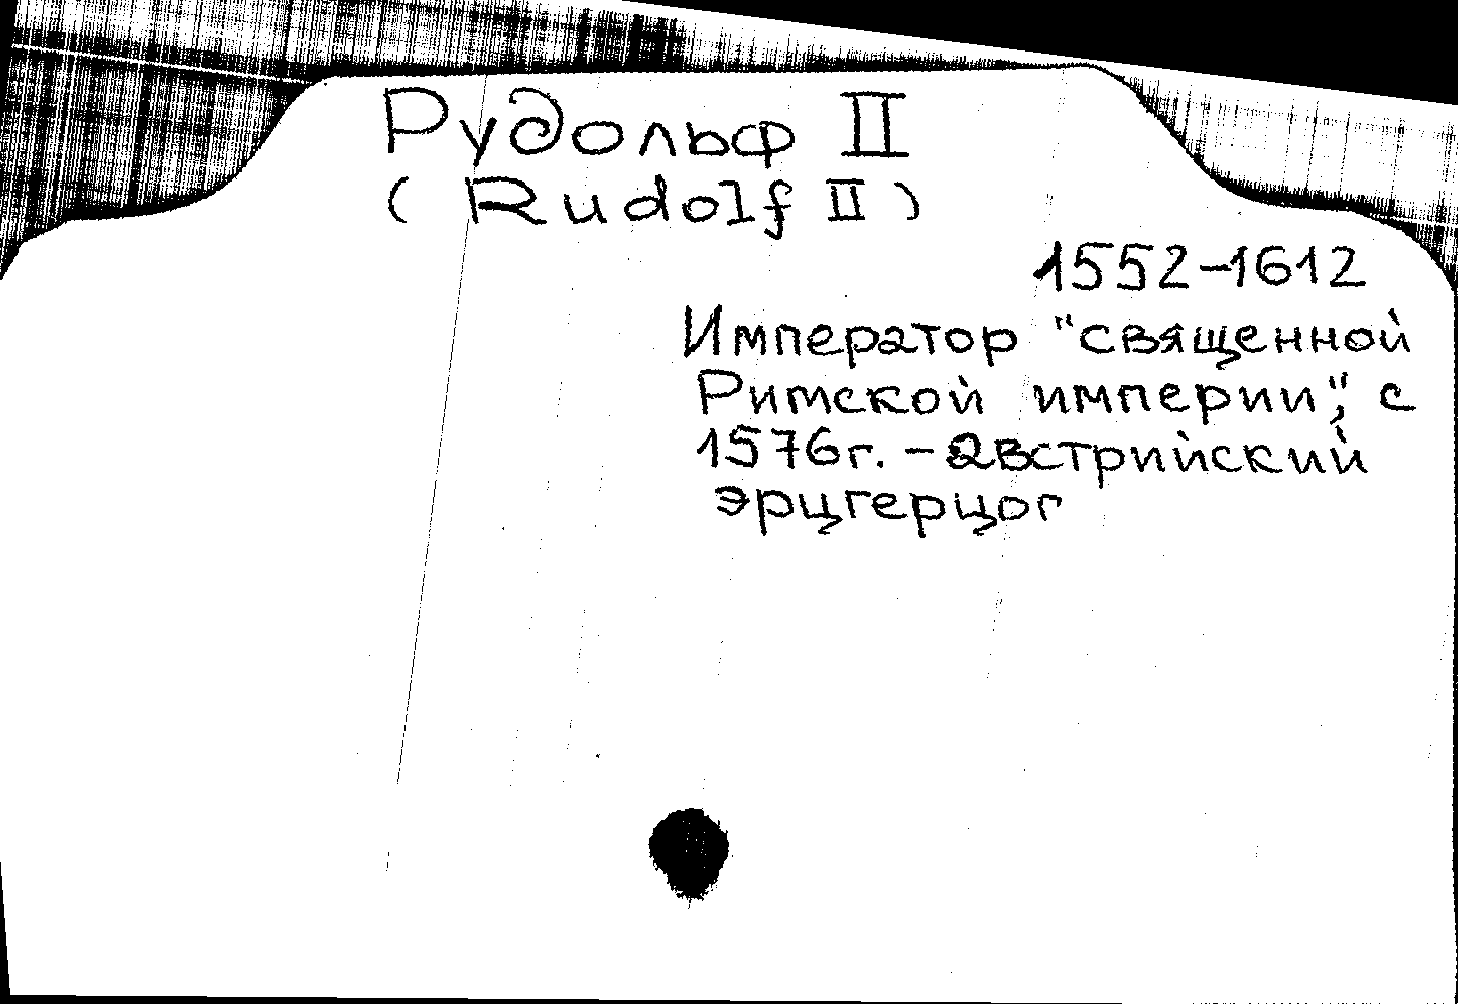 Рудольф II
(Rudolf II)
1552-1612
Император "священной
Римской империи", с
1576г. - австрийский
эрцгерцог